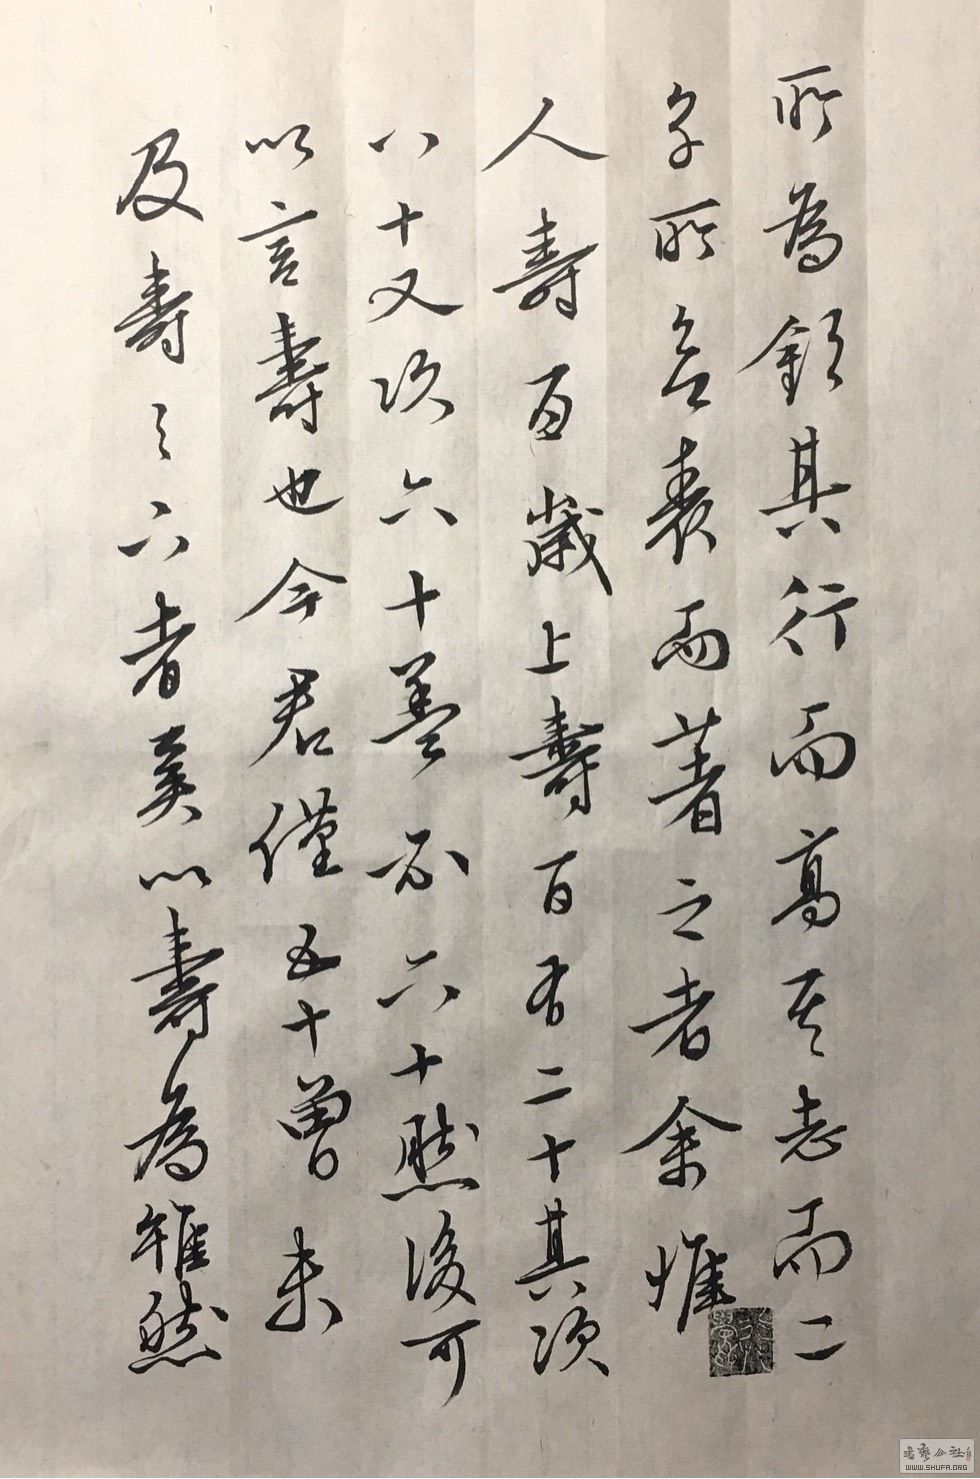 所為欽其行而高其志而二
子所欲表而著之者余惟
人壽百歲上壽百有二十其次
八十又次六十蓋必六十然後可
以言壽也今君僅五十曾未
及壽之下者奚以壽為雖然
書藝公社
WWW.SHUFA.ORG